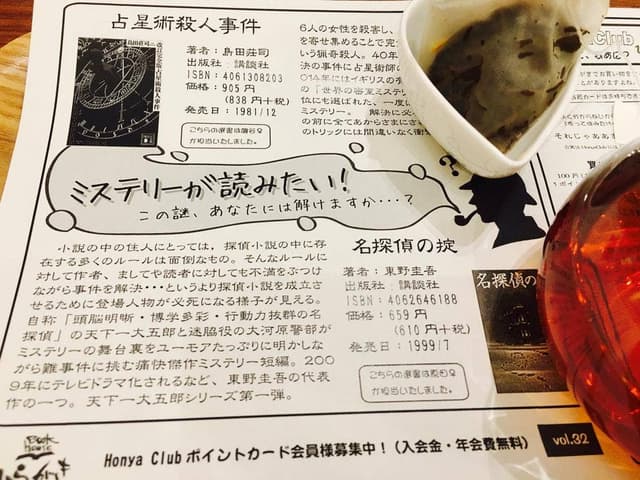 占星術殺人事件
著者：島田荘司
出版社：講談社
ISBN：4061308203
価格：905円
(838円+税)
発売日：1981/12
こちらの選書は
が担当いたしました。
6人の女性を殺害し、
を寄せ集めることで完
いう猟奇殺人。40年
決の事件に占星術師の
014年にはイギリスの
の「世界の密室ミステリ
位にも選ばれた、一度は
ミステリー。 解決に必
の前に全てあからさまにさ
のトリックには間違いなく衝
Club
ミステリーが読みたい！
この謎、あなたには解けますか・・・？
？
小説の中の住人にとっては，探偵小説の中に存
在する多くのルールは面倒なもの。そんなルールに
対して作者、ましてや読者に対しても不満をぶつけ
ながら事件を解決・・・というより探偵小説を成立さ
せるために登場人物が必死になる様子が見える。
自称「頭脳明晰・博学多彩・行動力抜群の名
探偵」の天下一大五郎と迷脇役の大河原警部が
ミステリーの舞台裏をユーモアたっぷりに明かしな
がら難事件に挑む痛快傑作ミステリー短編。200
9年にテレビドラマ化されるなど、東野圭吾の代表
作の一つ。天下一大五郎シリーズ第一弾。
名探偵の掟
著者：東野圭吾
出版社：講談社
ISBN：4062646188
価格：659円
(610円+税)
発売日：1999/7
こちらの選書は
が担当いたしました。
名探偵の
それじゃああ
100円
1ポイン
Book
House
Honya Club ポイントカード会員様募集中！（入会金・年会費無料）
vol.32